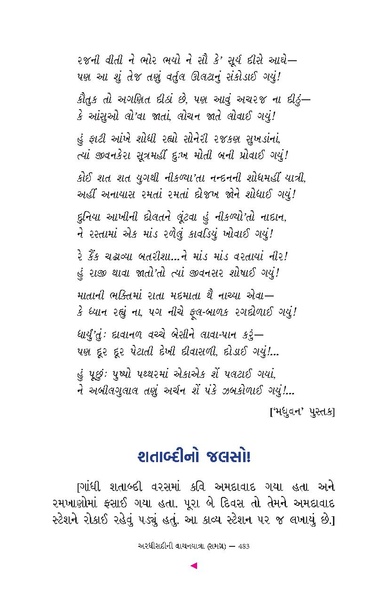 રજની વીતી ને ભોર ભયો ને સૌ કે' સૂર્ય દીસે આઘે—
પણ આ શું તેજ તણું વર્તુલ ઊલટાનું સંકોડાઈ ગયું!
કૌતુક તો અગણિત દીઠાં છે, પણ આવું અચરજ ના દીઠું—
કે આંસુઓ લો'વા જાતાં, લોચન જાતે લોવાઈ ગયું!
હું ફાટી આંખે શોધી રહ્યો સોનેરી રજકણ સુખડાંનાં,
ત્યાં જીવનકેરા સૂત્રમહીં દુઃખ મોતી બની પ્રોવાઈ ગયું!
કોઈ શત શત યુગથી નીકળ્યા'તા નન્દનની શોધમહીં યાત્રી,
અહીં અનાયાસ રમતાં રમતાં દોજખ જોને શોધાઈ ગયું!
દુનિયા આખીની દોલતને લૂંટવા હું નીકળ્યો'તો નાદાન,
ને રસ્તામાં એક માંડ રળેલું કાવડિયું ખોવાઈ ગયું!
રે કૈંક ચઢાવ્યા બતરીશા...ને માંડ માંડ વરતાયાં નીર!
હું રાજી થાવા જાતો'તો ત્યાં જીવનસર શોષાઈ ગયું!
માતાની ભક્તિમાં રાતા મદમાતા થૈ નાચ્યા એવા—
કે ધ્યાન રહ્યું ના, પગ નીચે ફૂલ-બાળક રગદોળાઈ ગયું!
ધાર્યું'તું: દાવાનળ વચ્ચે બેસીને લાવા-પાન કરું—
પણ દૂર દૂર પેટાતી દેખી દીવાસળી, દોડાઈ ગયું!...
હું પૂછું: પુષ્પો પથ્થરમાં એકાએક શેં પલટાઈ ગયાં,
ને અબીલગુલાલ તણું અર્ચન શેં પંકે ઝબકોળાઈ ગયું!...
['મધુવન' પુસ્તક]
શતાબ્દીનો જલસો!
[ગાંધી શતાબ્દી વરસમાં કવિ અમદાવાદ ગયા હતા અને
રમખાણોમાં ફસાઈ ગયા હતા. પૂરા બે દિવસ તો તેમને અમદાવાદ
સ્ટેશને રોકાઈ રહેવું પડ્યું હતું. આ કાવ્ય સ્ટેશન પર જ લખાયું છે.]
અરધીસદીની વાચનયાત્રા (સમગ્ર) — 483